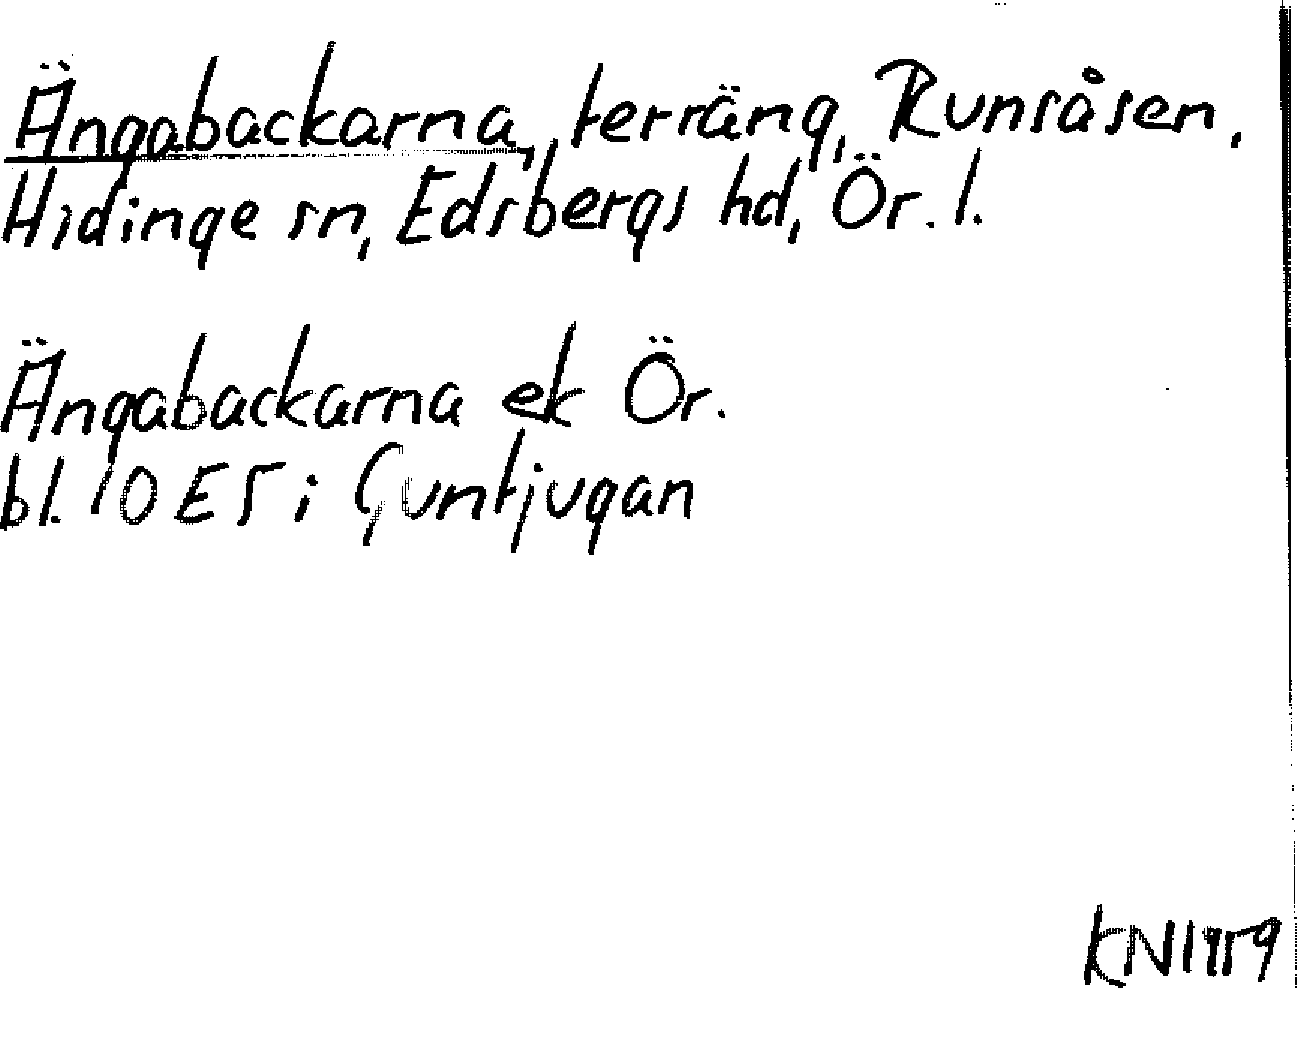 Ängabackarna, terräng, Runsåsen,
Hidinge sn, Edsbergs hd, Ör. l.
Ängabackarna ek Ör.
bl. 10 E5 i Guntjugan
KN 1959